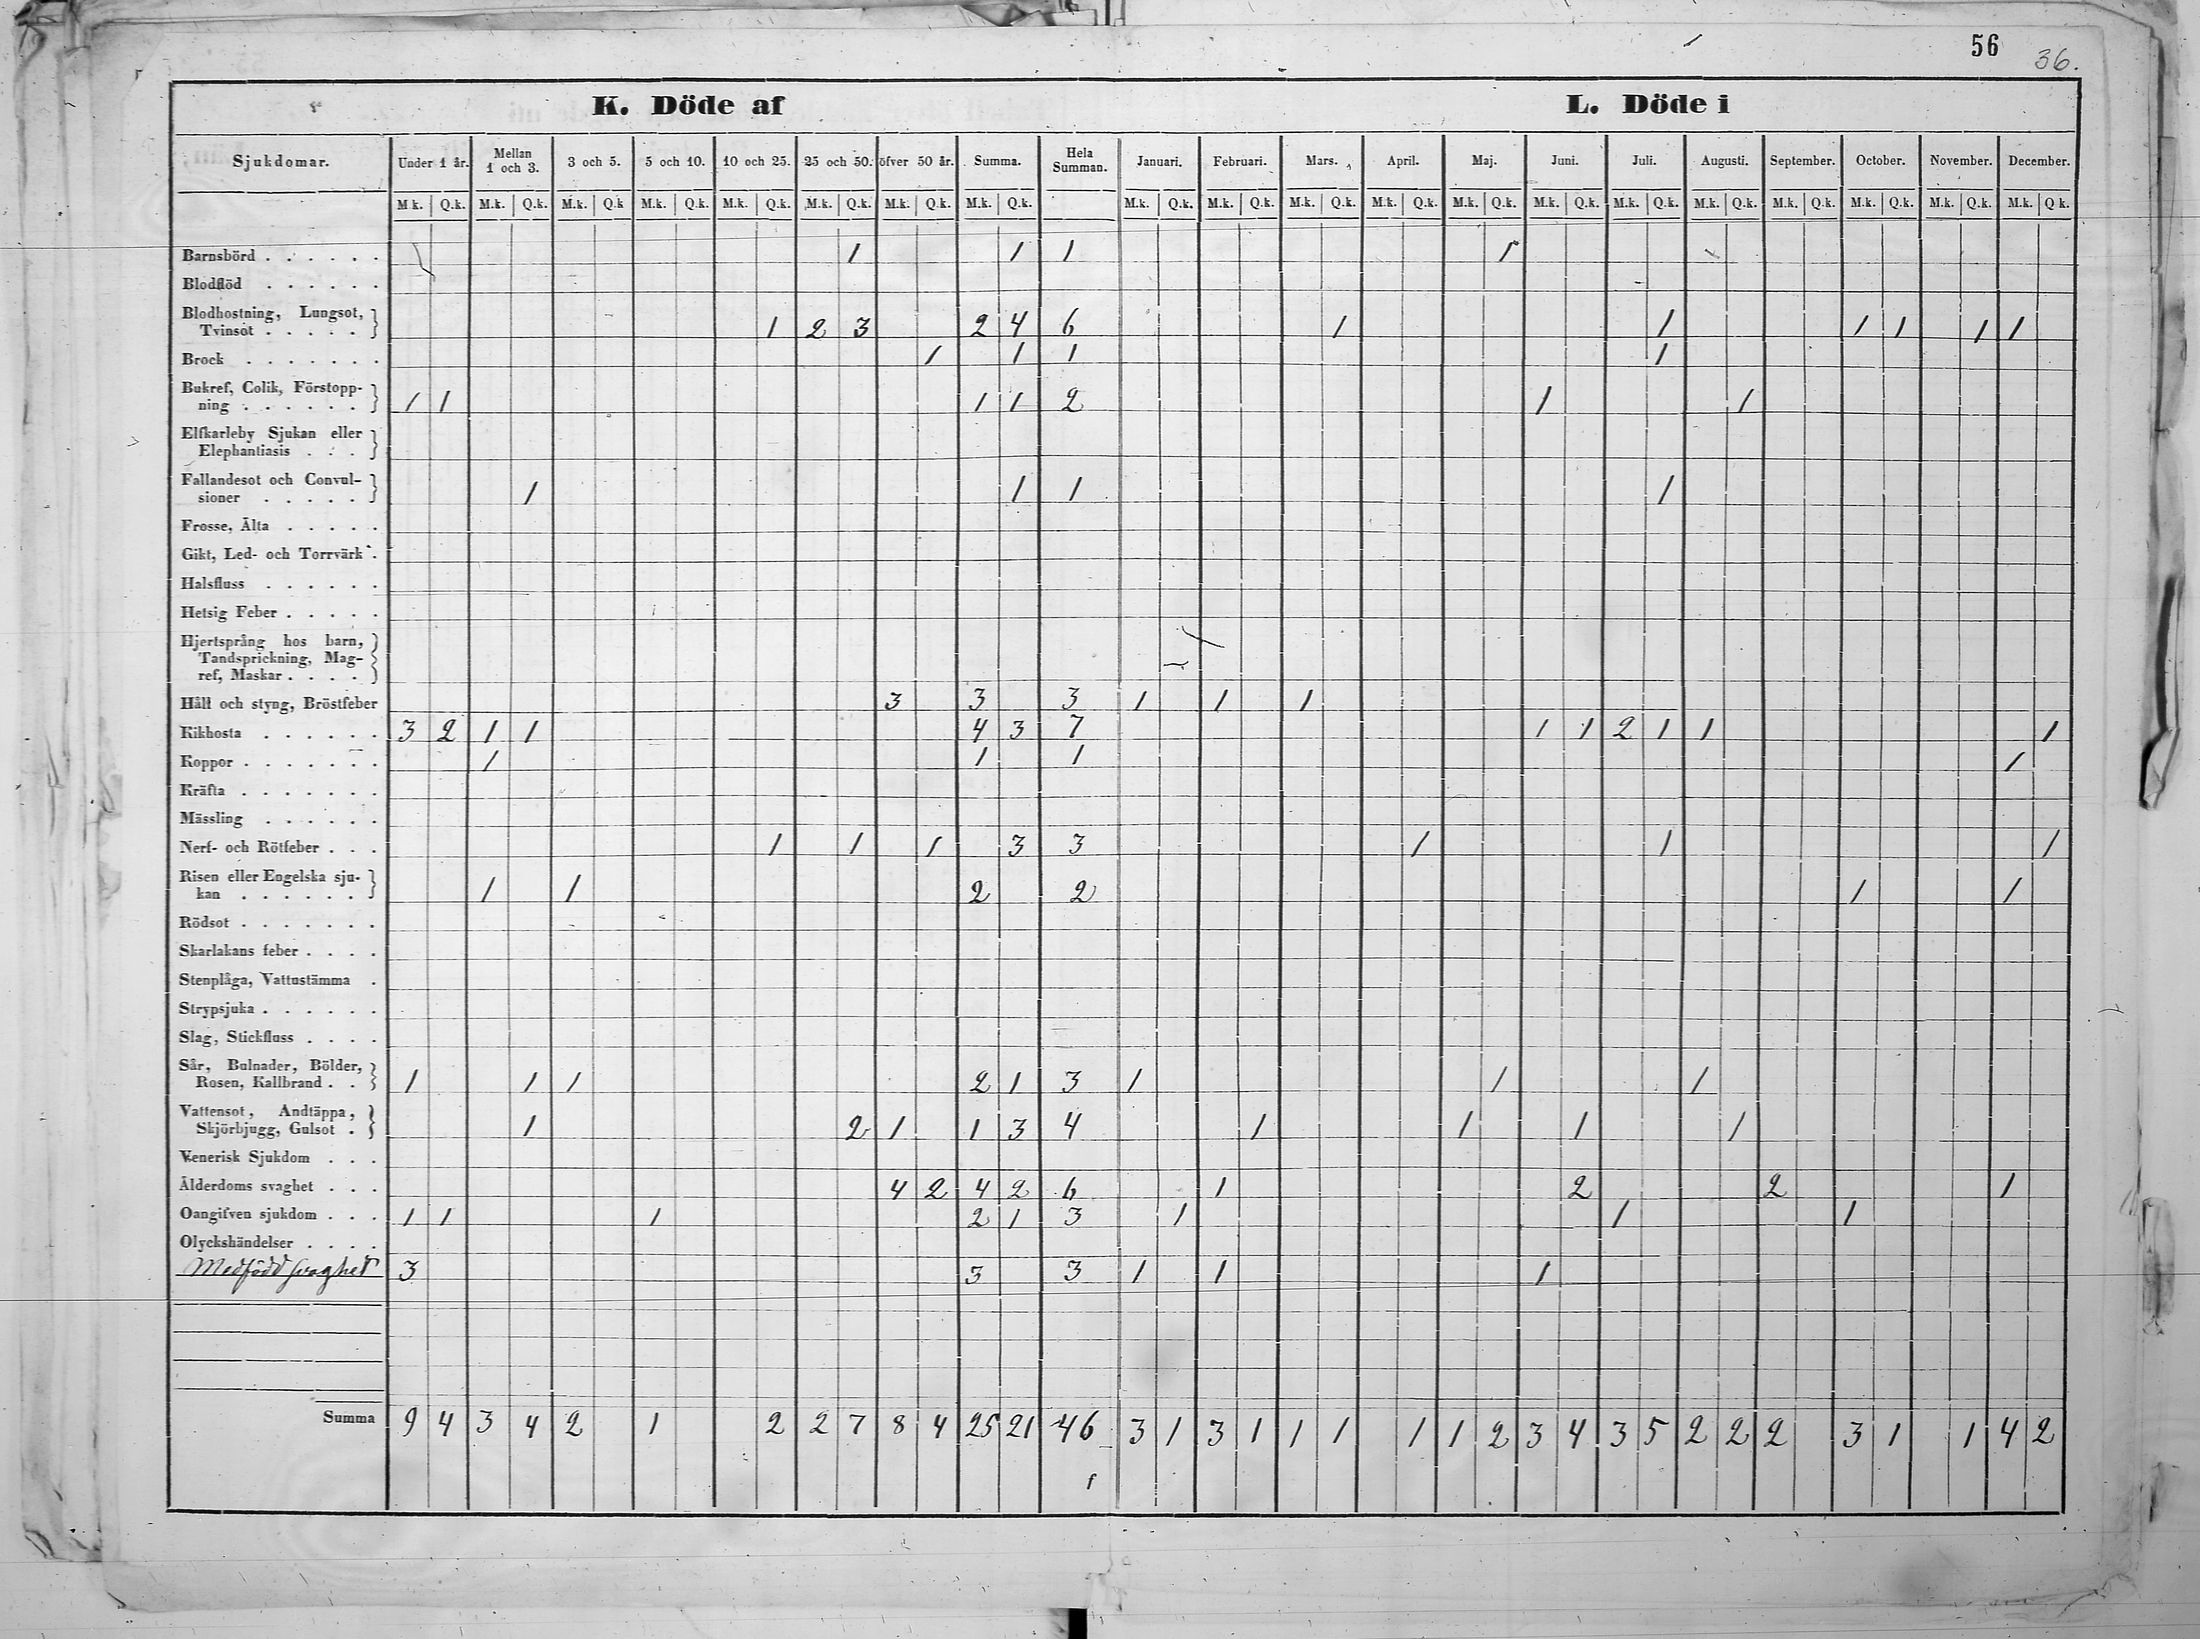 56 36.
K. Döde af L. Döde i
Sjukdomar. Under 1 år. Mellan 1 och 3. 3 och 5. 5 och 10. 10 och 25. 25 och 50. öfver 50 år. Summa. Hela Summan. Januari. Februari. Mars. April. Maj. Juni. Juli. Augusti. September. October. November. December.
M.k. Q.k. M.k. Q.k. M.k. Q.k M.k. Q.k. M.k. Q.k. M.k. Q.k. M.k. Q.k. M.k. Q.k. M.k. Q.k. M.k. Q.k. M.k. Q.k. M.k. Q.k. M.k. Q.k. M.k. Q.k. M.k. Q.k. M.k. Q.k. M.k. Q.k. M.k. Q.k. M.k. Q.k. M.k. Q k.
Barnsbörd . . . . . . 1 1 1 1
Blodflöd . . . . . .
Blodhostning, Lungsot,
Tvinsot . . . . . 1 2 3 2 4 6 1 1 1 1 1 1
Brock . . . . . . . 1 1 1 1
Bukref, Colik, Förstopp-
ning . . . . . . 1 1 1 1 2 1 1
Elfkarleby Sjukan eller
Elephantiasis . . .
Fallandesot och Convul-
sioner . . . . . 1 1 1 1
Frosse, Älta . . . . .
Gikt, Led- och Torrvärk .
Halsfluss . . . . . .
Hetsig Feber . . . . .
Hjertsprång hos barn,
Tandsprickning, Mag-
ref, Maskar . . . .
Håll och styng, Bröstfeber 3 3 3 1 1 1
Kikhosta . . . . . . 3 2 1 1 4 3 7 1 1 2 1 1 1
Koppor . . . . . . . 1 1 1 1
Kräfta . . . . . . .
Mässling . . . . . .
Nerf- och Rötfeber . . . 1 1 1 3 3 1 1 1
Risen eller Engelska sju-
kan . . . . . . 1 1 2 2 1 1
Rödsot . . . . . . .
Skarlakans feber . . . .
Stenplåga, Vattustämma .
Strypsjuka . . . . . .
Slag, Stickfluss . . . .
Sår, Bulnader, Bölder,
Rosen, Kallbrand . . 1 1 1 2 1 3 1 1 1
Vattensot, Andtäppa,
Skjörbjugg, Gulsot . 1 2 1 1 3 4 1 1 1 1
Venerisk Sjukdom . . .
Ålderdoms svaghet . . . 4 2 4 2 6 1 2 2 1
Oangifven sjukdom . . . 1 1 1 2 1 3 1 1 1
Olyckshändelser . . . .
Medfödd svaghet 3 3 3 1 1 1
Summa 9 4 3 4 2 1 2 2 7 8 4 25 21 46 3 1 3 1 1 1 1 1 2 3 4 3 5 2 2 2 3 1 1 4 2